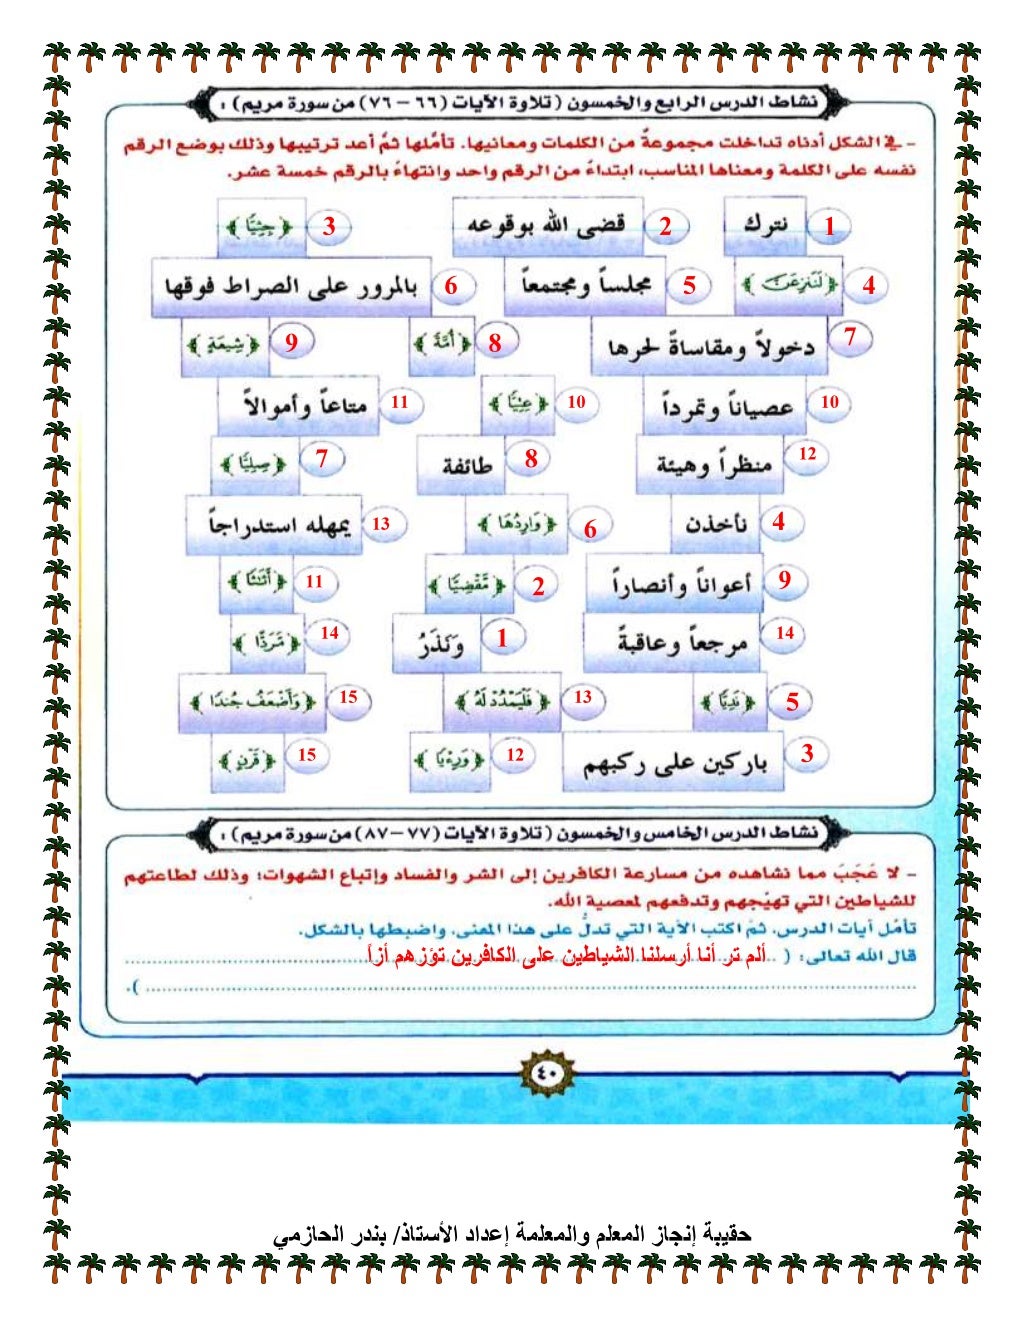 نشاط الدرس الرابع والخمسون (تلاوة الآيات (٦٦ – ٧٦) من سورة مريم) :
- في الشكل أدناه تداخلت مجموعةٌ من الكلمات ومعانيها. تأملها ثمّ أعد ترتيبها وذلك بوضع الرقم
نفسه على الكلمة ومعناها المناسب، ابتداءً من الرقم واحد وانتهاءً بالرقم خمسة عشر.
1 نترك 2 قضى الله بوقوعه 3 ﴿ جِثِيًّا ﴾
4 ﴿ لَنَنزِعَنَّ ﴾ 5 مجلساً ومجتمعاً 6 بالمرور على الصراط فوقها
7 دخولاً ومقاساةً لحرها 8 ﴿ أُمَّةً ﴾ 9 ﴿ شِيعَةٍ ﴾
10 عصياناً وتمرداً 10 ﴿ عِتِيًّا ﴾ 11 متاعاً وأموالاً
12 منظراً وهيئة 8 طائفة 7 ﴿ صِلِيًّا ﴾
4 نأخذن 6 ﴿ وَارِدُهَا ﴾ 13 يمهله استدراجاً
9 أعواناً وأنصاراً 2 ﴿ مَّقْضِيًّا ﴾ 11 ﴿ أَثَٰثًا ﴾
14 مرجعاً وعاقبةً 1 وَنَذَرُ 14 ﴿ مَّرَدًّا ﴾
5 ﴿ نَدِيًّا ﴾ 13 ﴿ فَلْيَمْدُدْ لَهُ ﴾ 15 ﴿ وَأَضْعَفُ جُندًا ﴾
3 باركين على ركبهم 12 ﴿ وَرِءْيًا ﴾ 15 ﴿ قَرْنٍ ﴾
نشاط الدرس الخامس والخمسون (تلاوة الآيات (٧٧ – ٨٧) من سورة مريم) :
- لا عَجَبَ مما نشاهده من مسارعة الكافرين إلى الشر والفساد وإتباع الشهوات؛ وذلك لطاعتهم
للشياطين التي تهيّجهم وتدفعهم لمعصية الله.
تأمّل آيات الدرس، ثمّ اكتب الآية التي تدلُّ على هذا المعنى، واضبطها بالشكل.
قال الله تعالى: ( .. ألم تر أنا أرسلنا الشياطين على الكافرين تؤزهم أزاً
).
٤٠
حقيبة إنجاز المعلم والمعلمة إعداد الأستاذ/ بندر الحازمي